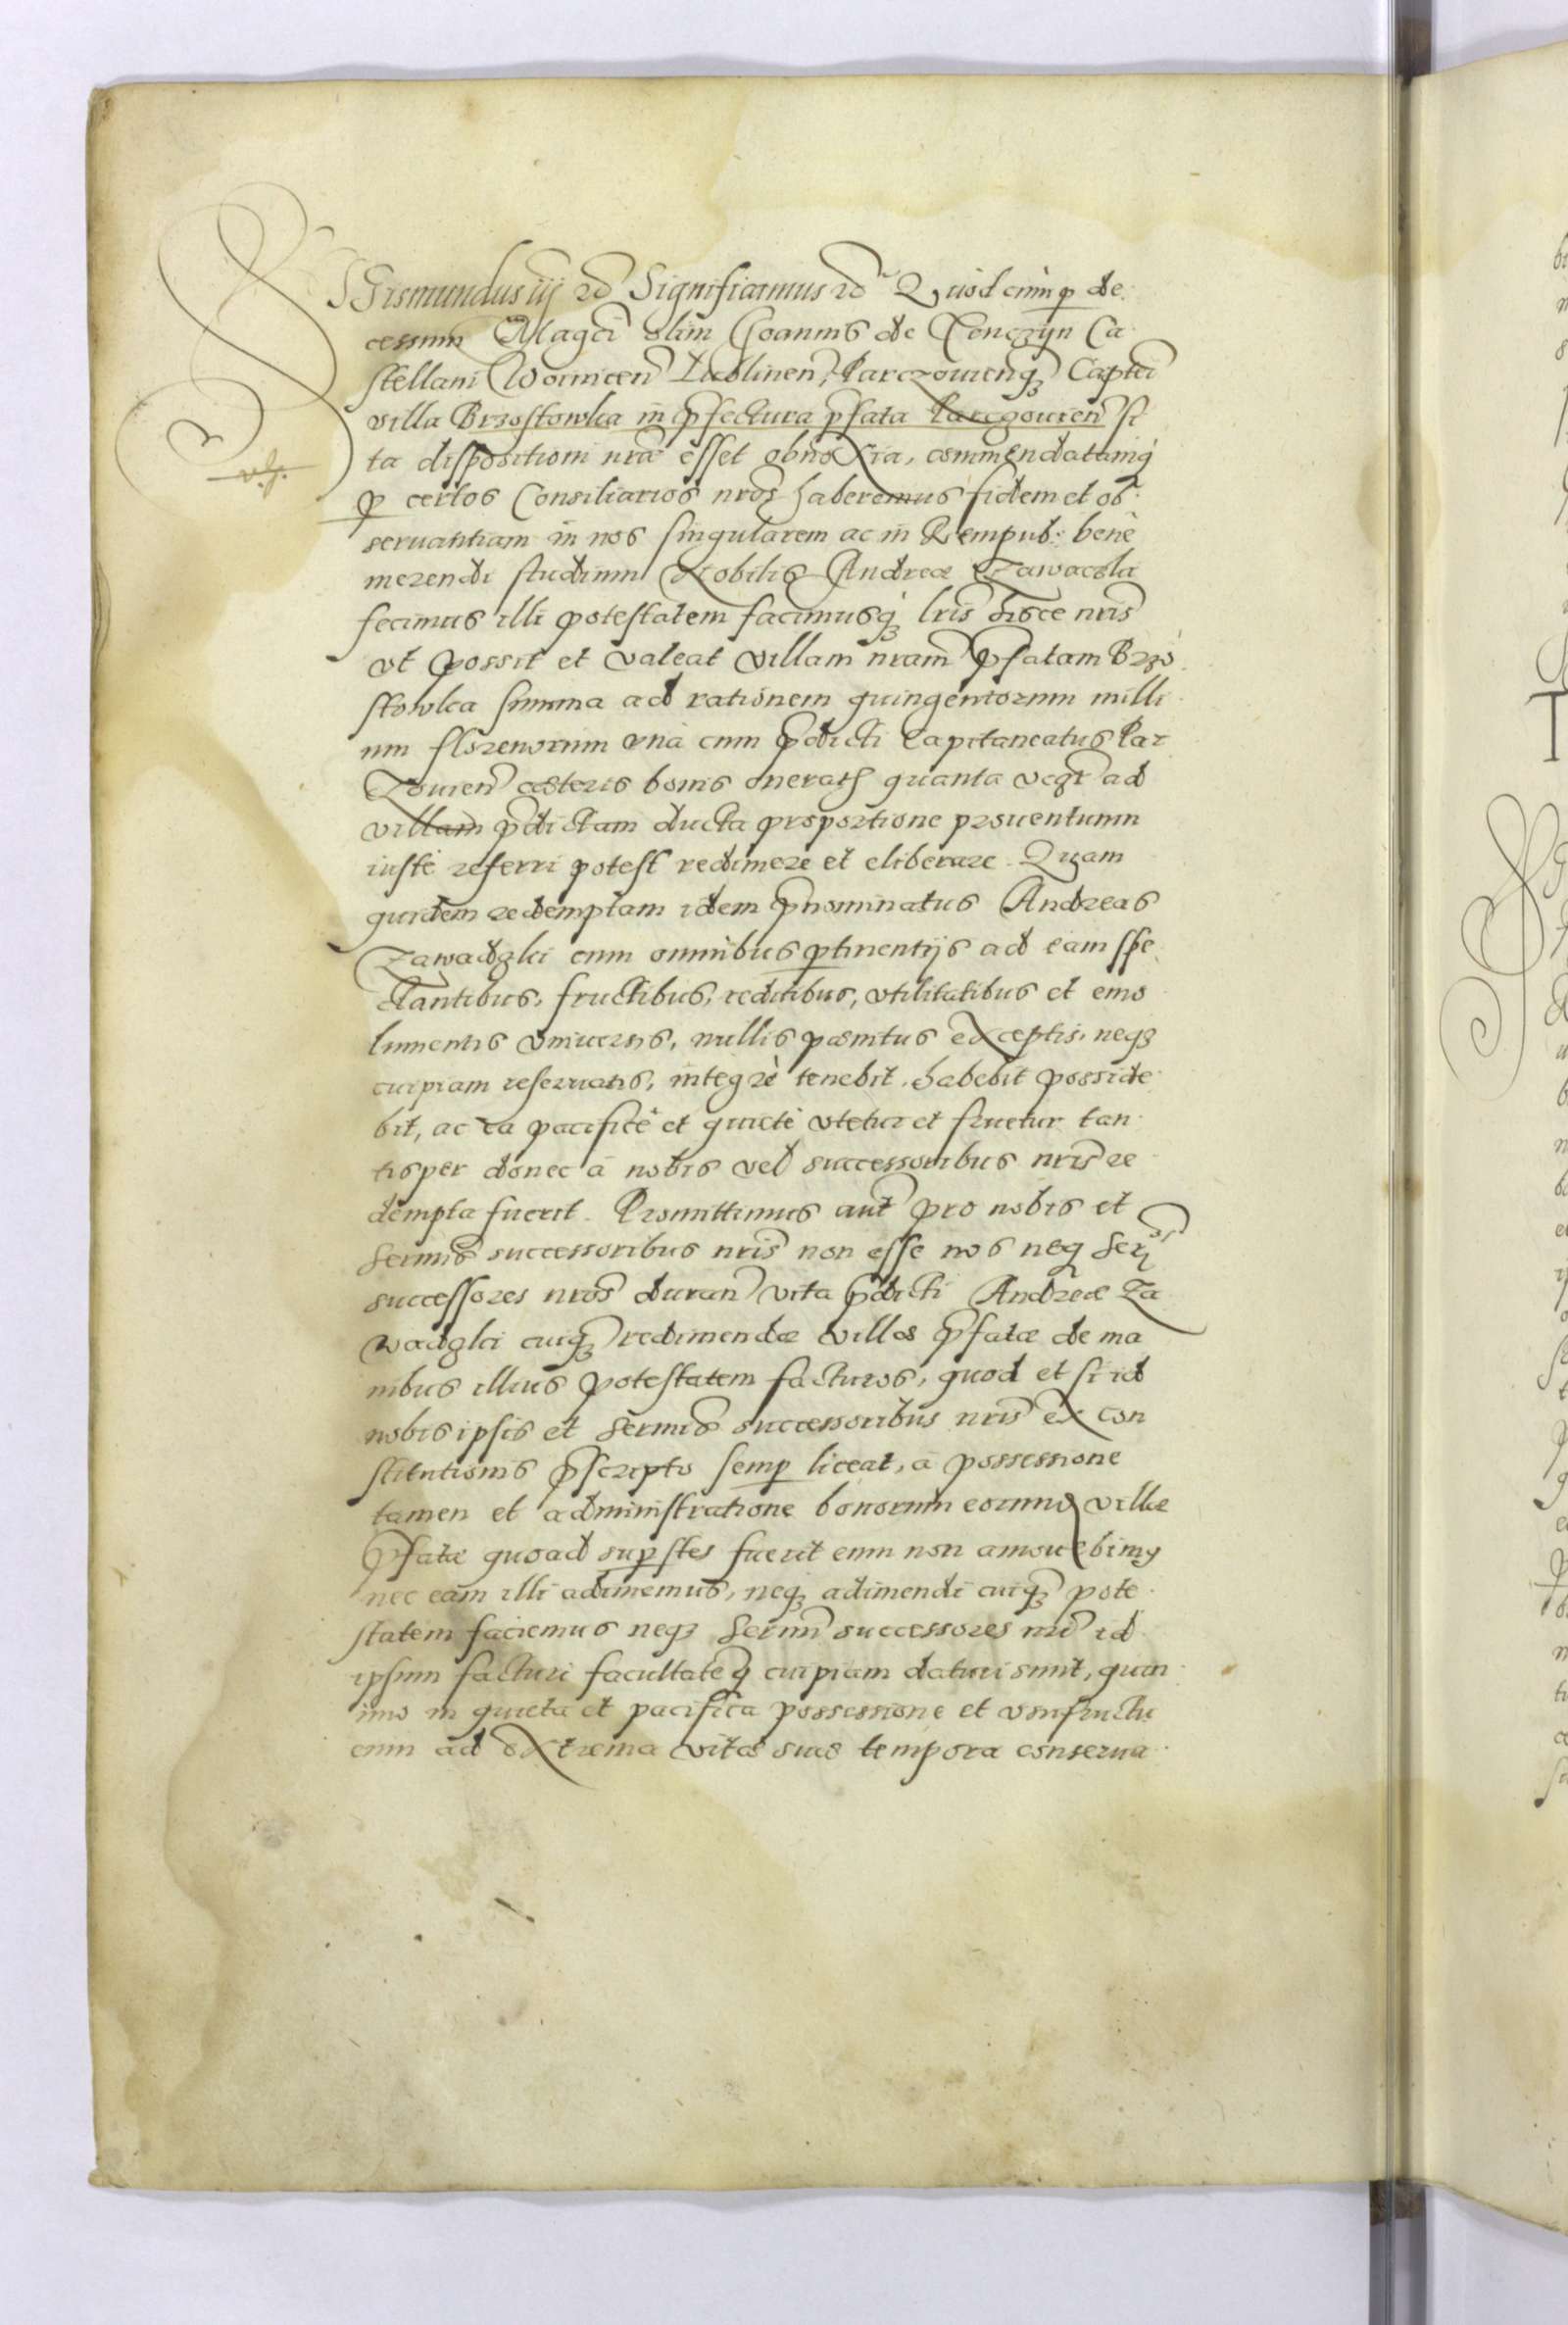 SGismundus iij ec̃ Significamus ec̃ Quod cum p̱ de
cessum Magci olim Joannis de Tenczyn Ca
stellani Woinicen̄ Lublinen̄, Parczouienq₃ Captei
villa Brzostowka in p̄fectura p̄fata Parczouien̄ si
ta dispositioni nr̄ae esset obnoxia, commendatamq́
p̱ certos Consiliarios nrōs haberemus fidem et ob
seruantiam in nos singularem ac in Rempub: benè
merendi studium Nobilis Andreae Zawaczki
fecimus illi potestatem facimusq́₃ lrīs hisce nrīs
vt possit et valeat villam nram̄ p̄fatam Brzo
stowka summa ad rationem quingentorum milli
um florenorum vnà cum p̄dicti Capitaneatus Par
Zouien̄ caeteris bonis oneratā quanta vcgt ad
villam p̄dictam ducta proportione prouentuum
iustè referri potest redimere et eliberare. Quam
quidem redemptam idem p̄nominatus Andreas
Zawadzki cum omnibus p̱tinentijs ad eam spe
ctantibus, fructibus, reditibus, vtilitatibus et emo
lumentis vniuersis, nullis paenitus exceptis, neq₃
cuipiam reseruatis, integrè tenebit, habebit posside
bit, ac ea pacificè et quietè vtetur et fruetur tan
tisper donec à nobis vel successoribus nrīs re
dempta fuerit. Promittimus aut̄ pro nobis et
Sermis̄ successoribus nrīs non esse nos neq Ser
successores nrōs duran̄ vita p̄dicti Andreae Za
wadzki cuiq₃ redimendae villae p̄fatae de ma
nibus illius potestatem facturos, quod et si id
nobis ipsis et Sermis̄ successoribus nrīs ex con
stitutionis p̄scripto semp̱ liceat, à possessione
tamen et administratione bonorum eorum villae
p̄fatae quoad sup̱stes fuerit eum non amouebimꝰ
nec eam illi adimemus, neq₃ adimendi cuiq₃ pote
statem faciemus neq₃ Sermī successores nrī id
ipsum facturi facultateq́ cuipiam daturi sunt, quin
imo in quieta et pacifica possessione et vsufructu
eum ad extrema vitae suae tempora conserua